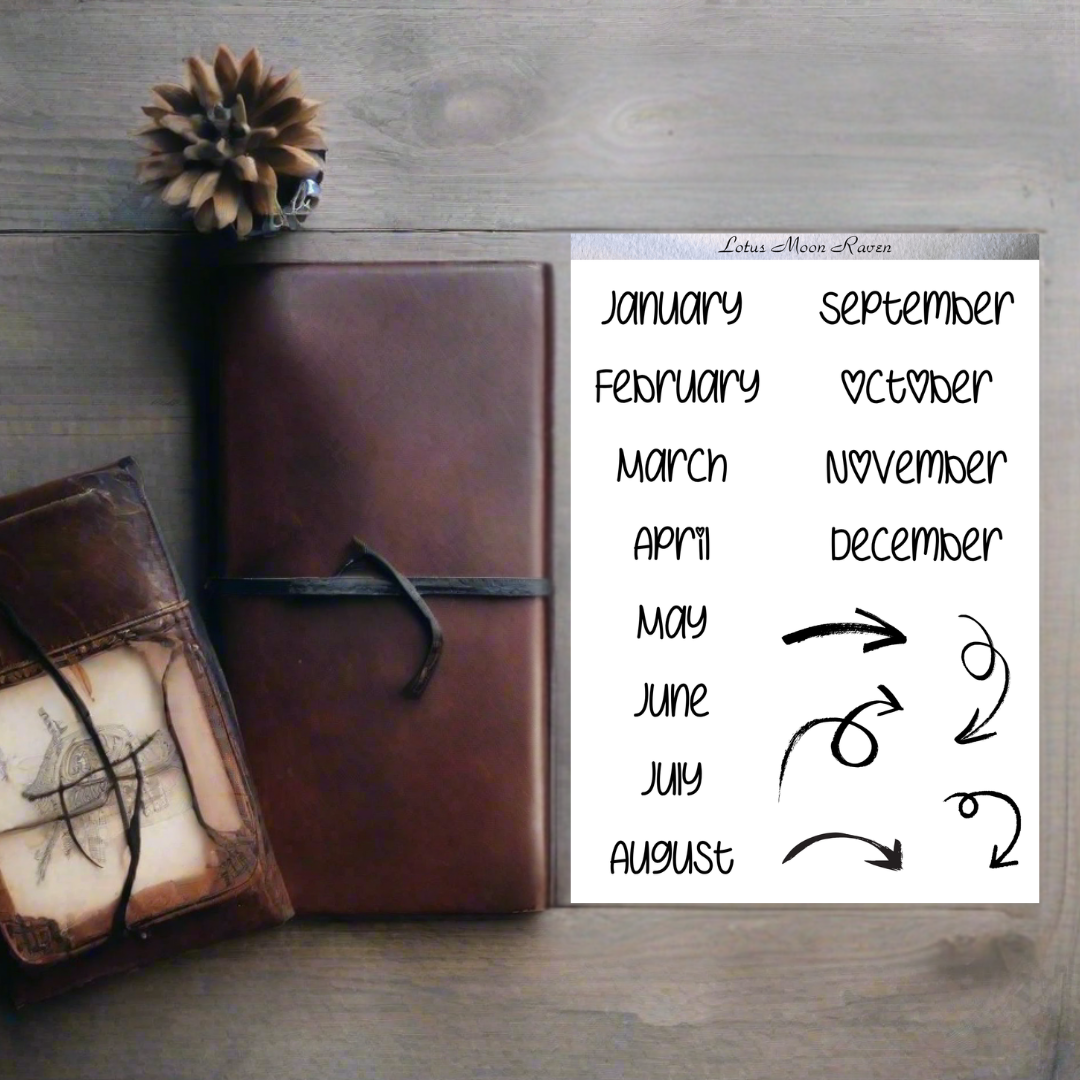 Lotus Moon Raven
January
February
March
April
May
June
July
August
September
October
November
December